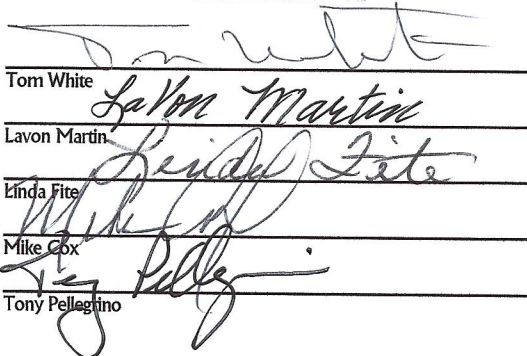 Tom White
Tom White
LaVon Martin
Lavon Martin
Linda Fite
Linda Fite
Mike Cox
Mike Cox
Tony Pellegrino
Tony Pellegrino